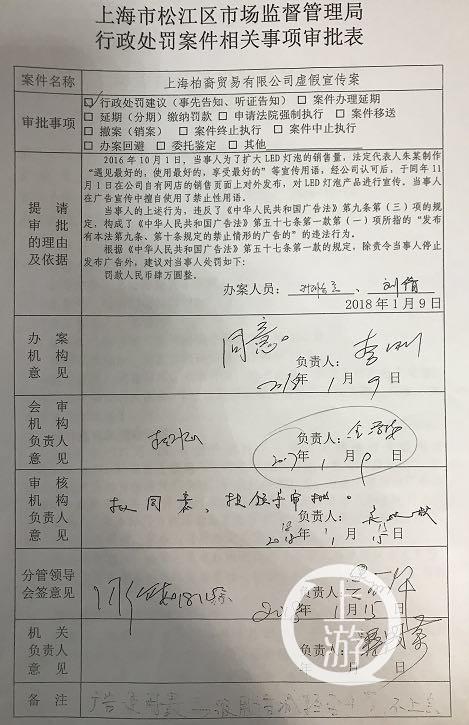 上海市松江区市场监督管理局
行政处罚案件相关事项审批表
案件名称 上海柏裔贸易有限公司虚假宣传案
审批事项
☑行政处罚建议（事先告知、听证告知） □ 案件办理延期
□ 延期（分期）缴纳罚款 □ 申请法院强制执行 □ 案件移送
□ 撤案（销案） □ 案件终止执行 □ 案件中止执行
□ 办案回避 □ 委托鉴定 □ 其他
提请审批的理由及依据
2016年10月1日，当事人为了扩大LED灯泡的销售量，法定代表人朱某制作
“遇见最好的，使用最好的，享受最好的”等宣传用语，经公司认可后，于同年11
月1日在公司自有网店的销售页面上对外发布，对LED灯泡产品进行宣传。当事人
在广告宣传中擅自使用了禁止性用语。
当事人的上述行为，违反了《中华人民共和国广告法》第九条第（三）项的规
定，构成了《中华人民共和国广告法》第五十七条第一款第（一）项所指的“发布
有本法第九条、第十条规定的禁止情形的广告的”的违法行为。
根据《中华人民共和国广告法》第五十七条第一款的规定，除责令当事人停止
发布广告外，建议对当事人处罚如下：
罚款人民币肆万圆整。
办案人员：
2018年1月9日
办案机构意见
同意。
负责人：
2018年1月9日
会审机构负责人意见
负责人：
2017年1月9日
审核机构负责人意见
拟同意、提领导审批。
负责人：
2018年1月15日
分管领导会签意见
负责人：
2018年1月15日
机关负责人意见
负责人：
年 月 日
备注
上游